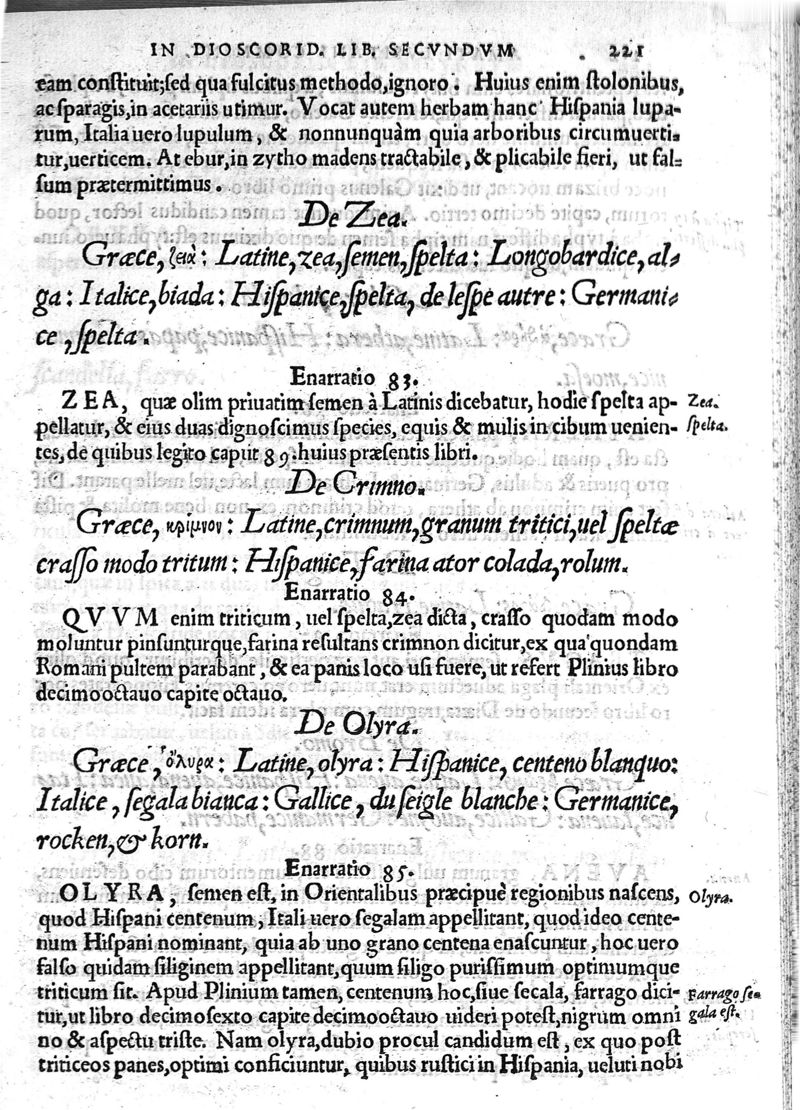 IN DIOSCORID. LIB. SECVNDVM 221
eam conſtituit; ſed qua fulcitus methodo, ignoro. Huius enim ſtolonibus,
ac ſparagis, in acetariis utimur. Vocat autem herbam hanc Hiſpania lupa-
rum, Italia uero lupulum, & nonnunquàm quia arboribus circumuerti-
tur, uerticem. At ebur, in zytho madens tractabile, & plicabile fieri, ut fal-
ſum prætermittimus.
De Zea.
Græce, ζειὰ: Latine, zea, ſemen, ſpelta: Longobardice, al-
ga: Italice, biada: Hiſpanice, ſpelta, de leſpe autre: Germani-
ce, ſpelta.
Enarratio 83.
ZEA, quæ olim priuatim ſemen à Latinis dicebatur, hodie ſpelta ap- Zea.
pellatur, & eius duas dignoſcimus ſpecies, equis & mulis in cibum uenien- ſpelta.
tes, de quibus legito caput 89. huius præſentis libri.
De Crimno.
Græce, κρίμνον: Latine, crimnum, granum tritici, uel ſpeltæ
craſſo modo tritum: Hiſpanice, farina ator colada, rolum.
Enarratio 84.
QVVM enim triticum, uel ſpelta, zea dicta, craſſo quodam modo
moluntur pinſunturque, farina reſultans crimnon dicitur, ex qua quondam
Romani pultem parabant, & ea panis loco uſi fuere, ut refert Plinius libro
decimooctauo capite octauo.
De Olyra.
Græce, ὄλυρα: Latine, olyra: Hiſpanice, centeno blanquo:
Italice, ſegala bianca: Gallice, du ſeigle blanche: Germanice,
rocken, & korn.
Enarratio 85.
OLYRA, ſemen eſt, in Orientalibus præcipuè regionibus naſcens, Olyra.
quod Hiſpani centenum, Itali uero ſegalam appellitant, quod ideo cente-
num Hiſpani nominant, quia ab uno grano centena enaſcuntur, hoc uero
falſo quidam ſiliginem appellitant, quum ſiligo puriſſimum optimumque
triticum ſit. Apud Plinium tamen, centenum hoc, ſiue ſecala, farrago dici- Farrago ſe-
tur, ut libro decimoſexto capite decimooctauo uideri poteſt, nigrum omni gala eſt.
no & aſpectu triſte. Nam olyra, dubio procul candidum eſt, ex quo poſt
triticeos panes, optimi conficiuntur, quibus ruſtici in Hiſpania, ueluti nobi